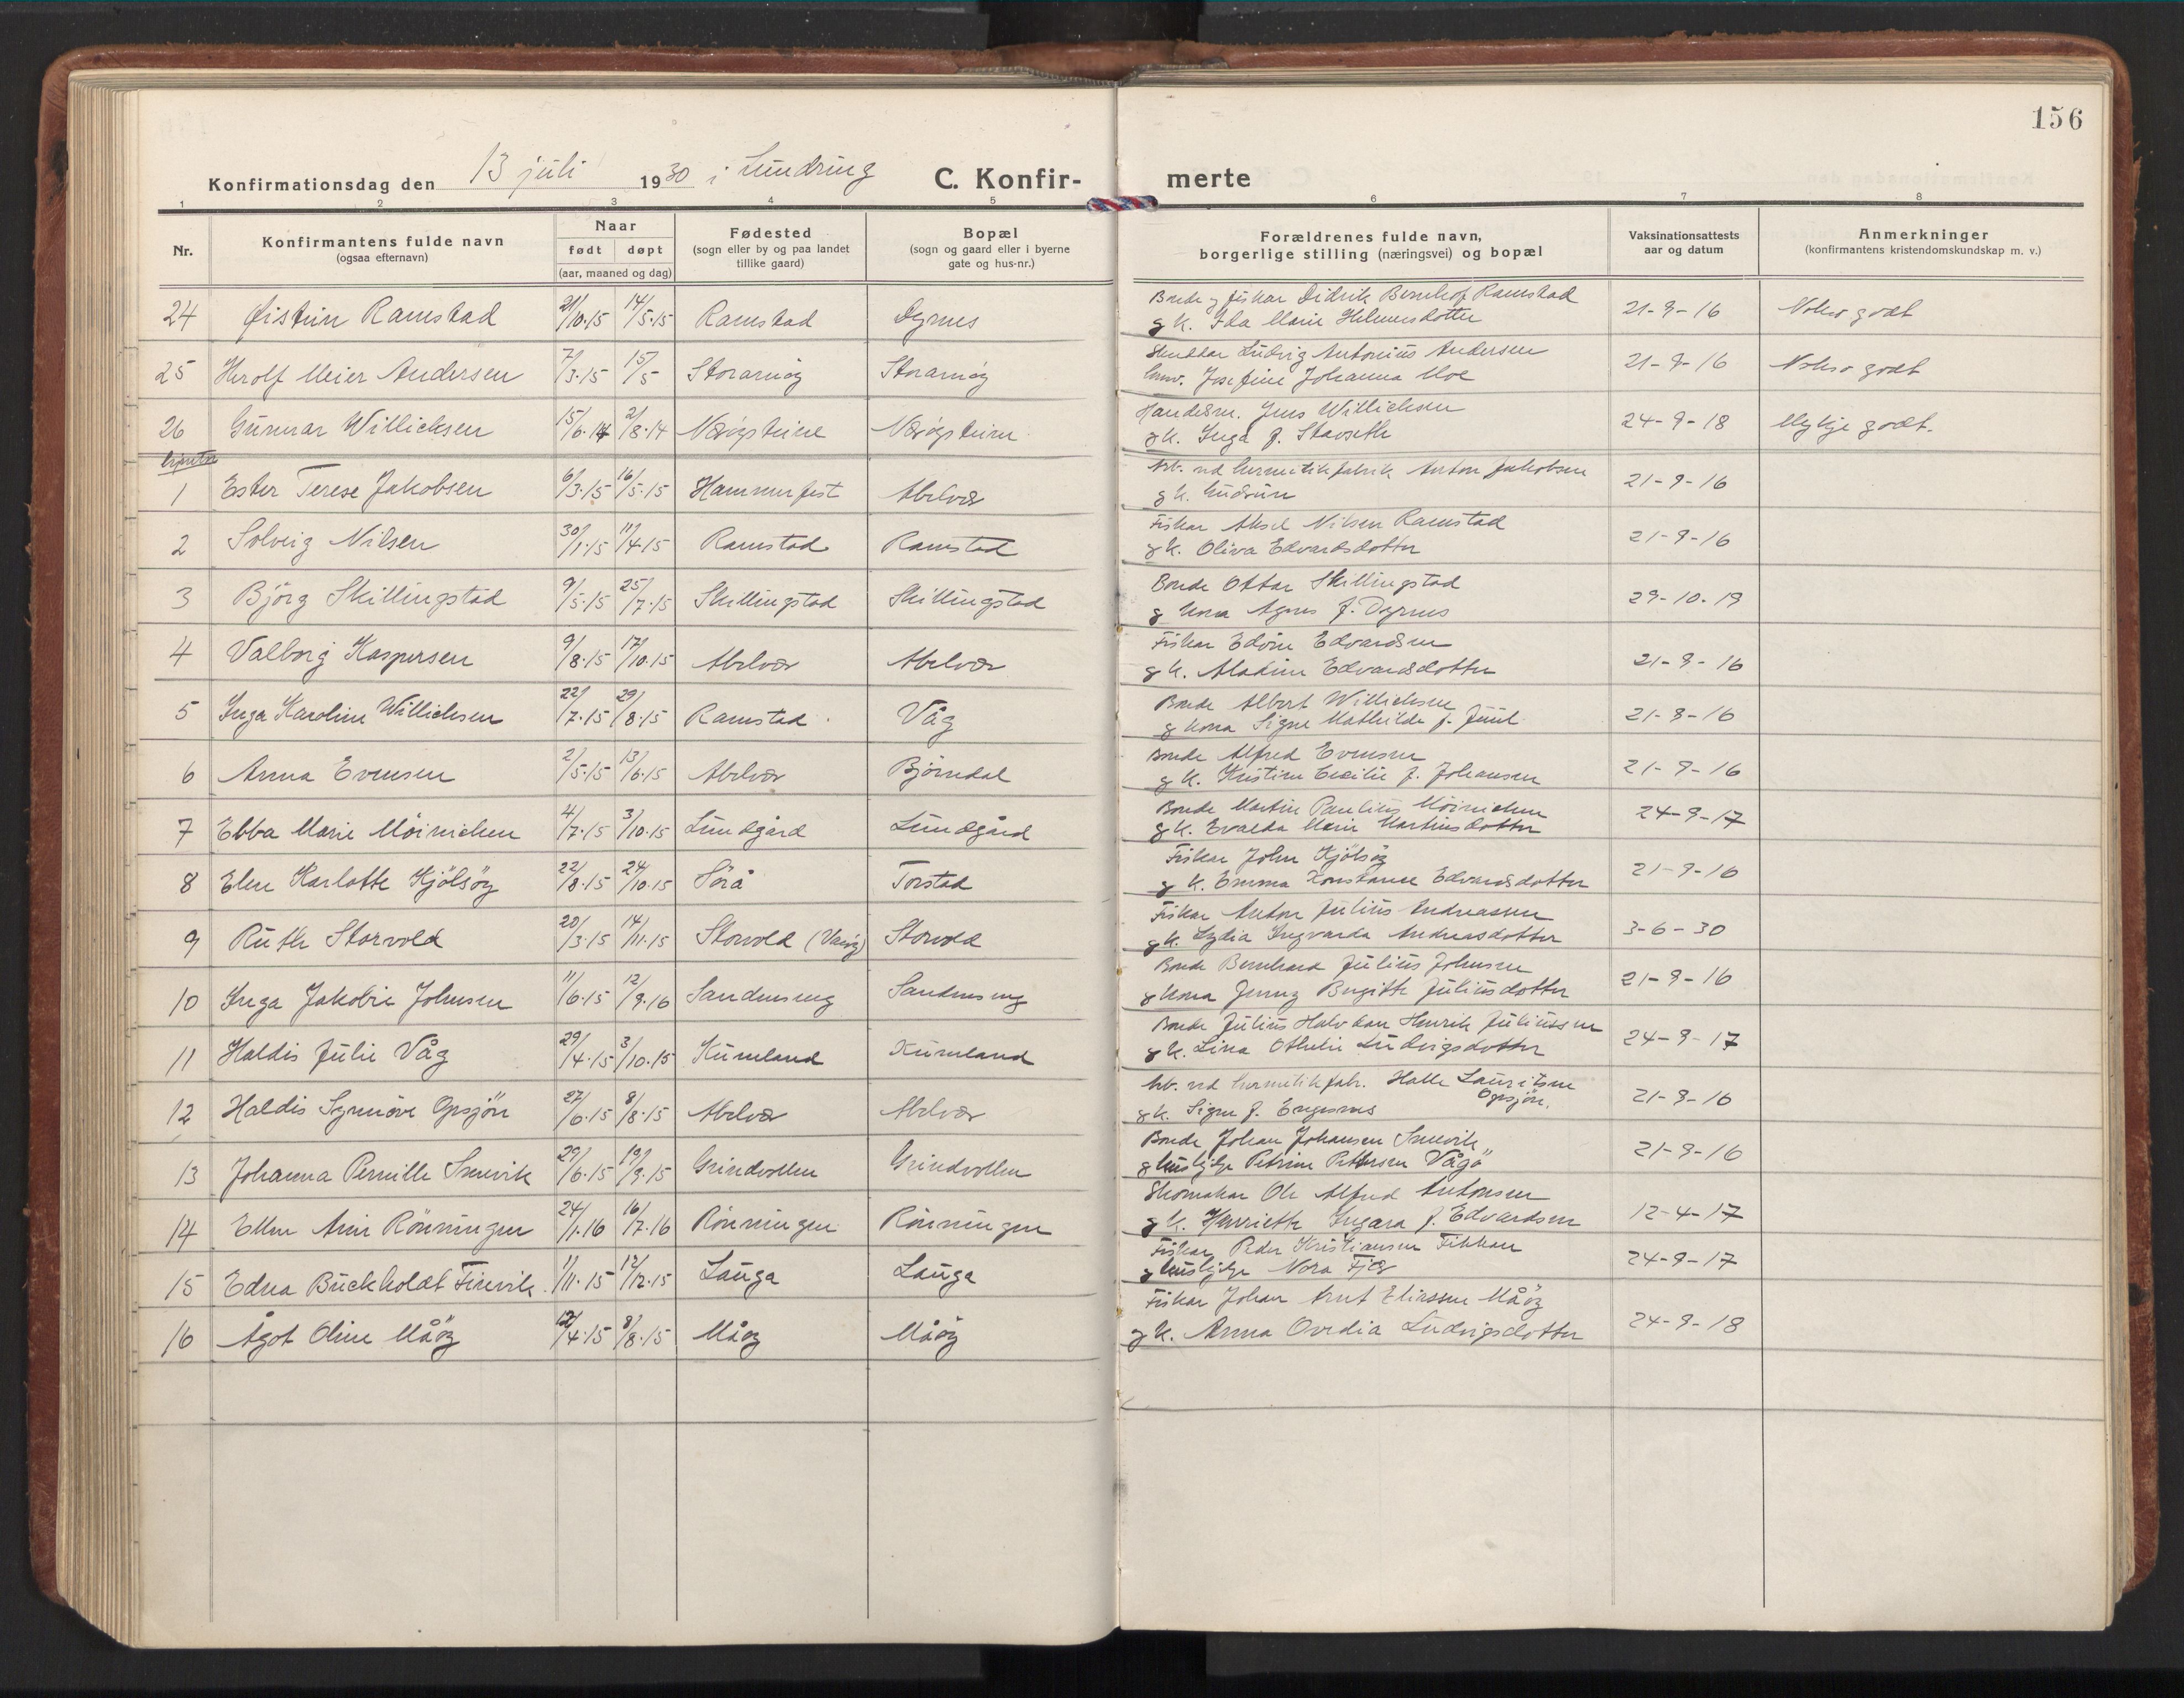 156
Konfirmationsdag den 13 juli 1930 i Lundring C. Konfir- merte
1 2 3 4 5 6 7 8
Nr.
Konfirmantens fulde navn
(ogsaa efternavn)
Naar
født døpt
(aar, maaned og dag)
Fødested
(sogn eller by og paa landet
tillike gaard)
Bopæl
(sogn og gaard eller i byerne
gate og hus-nr.)
Forældrenes fulde navn,
borgerlige stilling (næringsvei) og bopæl
Vaksinationsattests
aar og datum
Anmerkninger
(konfirmantens kristendomskundskap m. v.)
24 Øistein Ramstad 14/5.15 Ramstad Dyrnes Bonde og fiskar Didrik Ramstad
g k. Ida Marie 21-9-16 Nokso godt
25 Herolf Meier Andersen 7/3.15 15/5 Storarnøy Storarnøy Ludvig Antonius Andersen
Josefine Johanna Moe 21-9-16 Nokso godt
26 Gunnar Willichsen 15/6.14 2/8.14 Nærøysteine Nærøysteine Handelsm. Jens Willichsen
g k. Inga f. Stavseth 24-9-18 Mykje godt.
1 Ester Terese Jakobsen 6/3.15 16/5.15 Hammerfest Abelvær Arb. ved hermetikfabrik Anton Jakobsen
g k. Gudrun 21-9-16
2 Solveig Nilsen 30/1.15 11/4.15 Ramstad Ramstad Fiskar Aksel Nilsen Ramstad
g k. Oliva Edvardsdotter 21-9-16
3 Björg Skillingstad 9/5.15 25/7.15 Skillingstad Skillingstad Bonde Ottar Skillingstad
g kona Agnes f. Dyrnes 29-10-19
4 Valborg Kaspersen 9/8.15 17/10.15 Abelvær Abelvær Fiskar Edvin Edvardsen
g k. Aladine Edvardsdotter 21-9-16
5 Inga Karoline Willichsen 22/7.15 29/8.15 Ramstad Våg Bonde Albert Willichsen
g kona Signe Mathilde f. Juul 21-9-16
6 Anna Evensen 2/5.15 13/6.15 Abelvær Björndal Bonde Alfred Evensen
g k. Kristine Cecilie f. Johansen 21-9-16
7 Ebba Marie Möinichen 4/7.15 3/10.15 Lundgård Lundgård Bonde Martin Paulius Möinichen
g k. Evalda Marie Martinsdotter 24-9-17
8 Elen Karlotte Kjölsöy 22/8.15 24/10.15 Sörå Torstad Fiskar John Kjölsöy
g k. Emma Konstanse Edvardsdotter 21-9-16
9 Ruth Storvold 20/3.15 14/11.15 Storvold Storvold Fiskar Anton Julius Andreassen
g k. Lydia Ingvarda Andreasdotter 3-6-30
10 Inga Jakobie Johnsen 11/6.15 12/9.16 Sandneseng Sandneseng Bonde Bernhard Julius Johnsen
g kona Jenny Birgitte Juliusdotter 21-9-16
11 Haldis Julie Våg 29/4.15 3/10.15 Kumland Kumland Bonde Julius Halvdan Henrik Juliussen
g k. Lina Othelie Ludvigsdotter 24-9-17
12 Haldis Synnöve Opsjön 27/6.15 8/8.15 Abelvær Abelvær Arb. ved hermetikfabr. Halle Lauritsen
Opsjön.
g k. Signe f. Engesnes 21-9-16
13 Johanna Pernille Snevik 29/6.15 19/9.15 Grindvollen Grindvollen Bonde Johan Johansen Snevik
g huslydge Petrine Pettersen Vågö 21-9-16
14 Ellen Arin Rönningen 24/1.16 16/7.16 Rönningen Rönningen Skomakar Ole Alfred Antonsen
g k. Henriette Ingara f. Edvardsen 12-4-17
15 Edna Buckholdt Finvik 1/11.15 12/12.15 Lauga Lauga Fiskar Peder Kristiansen
Nora Fjær 24-9-17
16 Ågot Oline Måöy 12/4.15 8/8.15 Måöy Måöy Fiskar Johan Arnt Eliassen Måöy
g k. Anna Ovedia Ludvigsdotter 24-9-18